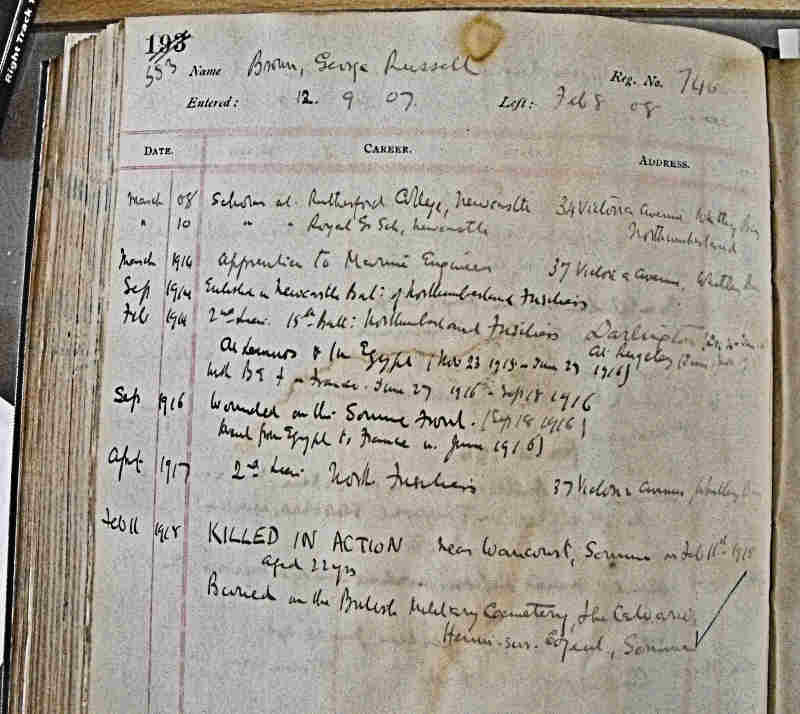 Right Track
193
553
Name Brown, George Russell Reg. No. 746
Entered: 12. 9 07. Left: Feb 8 08
DATE. CAREER. ADDRESS.
March 08 Scholar at Rutherford College, Newcastle 34 Victoria Avenue Whitley Bay
" 10 " " Royal Gr Sch, Newcastle Northumberland
March 1914 Apprentice to Marine Engineers 37 Victoria Avenue, Whitley Bay
Sep 1914 Enlisted in Newcastle Batt: of Northumberland Fusiliers
Feb 2nd Lieut. 15th Batt: Northumberland Fusiliers Darlington
At Lemnos & in Egypt (Nov 23 1915 - June 27 1916) At
with B E F in France. June 27 1916 - Sep 18 1916
Sep 1916 Wounded on the Somme Front. (Sep 18 1916)
from Egypt to France in June 1916)
April 1917 2nd Lieut North Fusiliers 37 Victoria Avenue Whitley Bay
Feb 11 1918 KILLED IN ACTION near Wancourt, Somme on Feb 11th 1918
aged 22 yrs
Buried in the British Military Cemetery, the Calvaire,
Somme